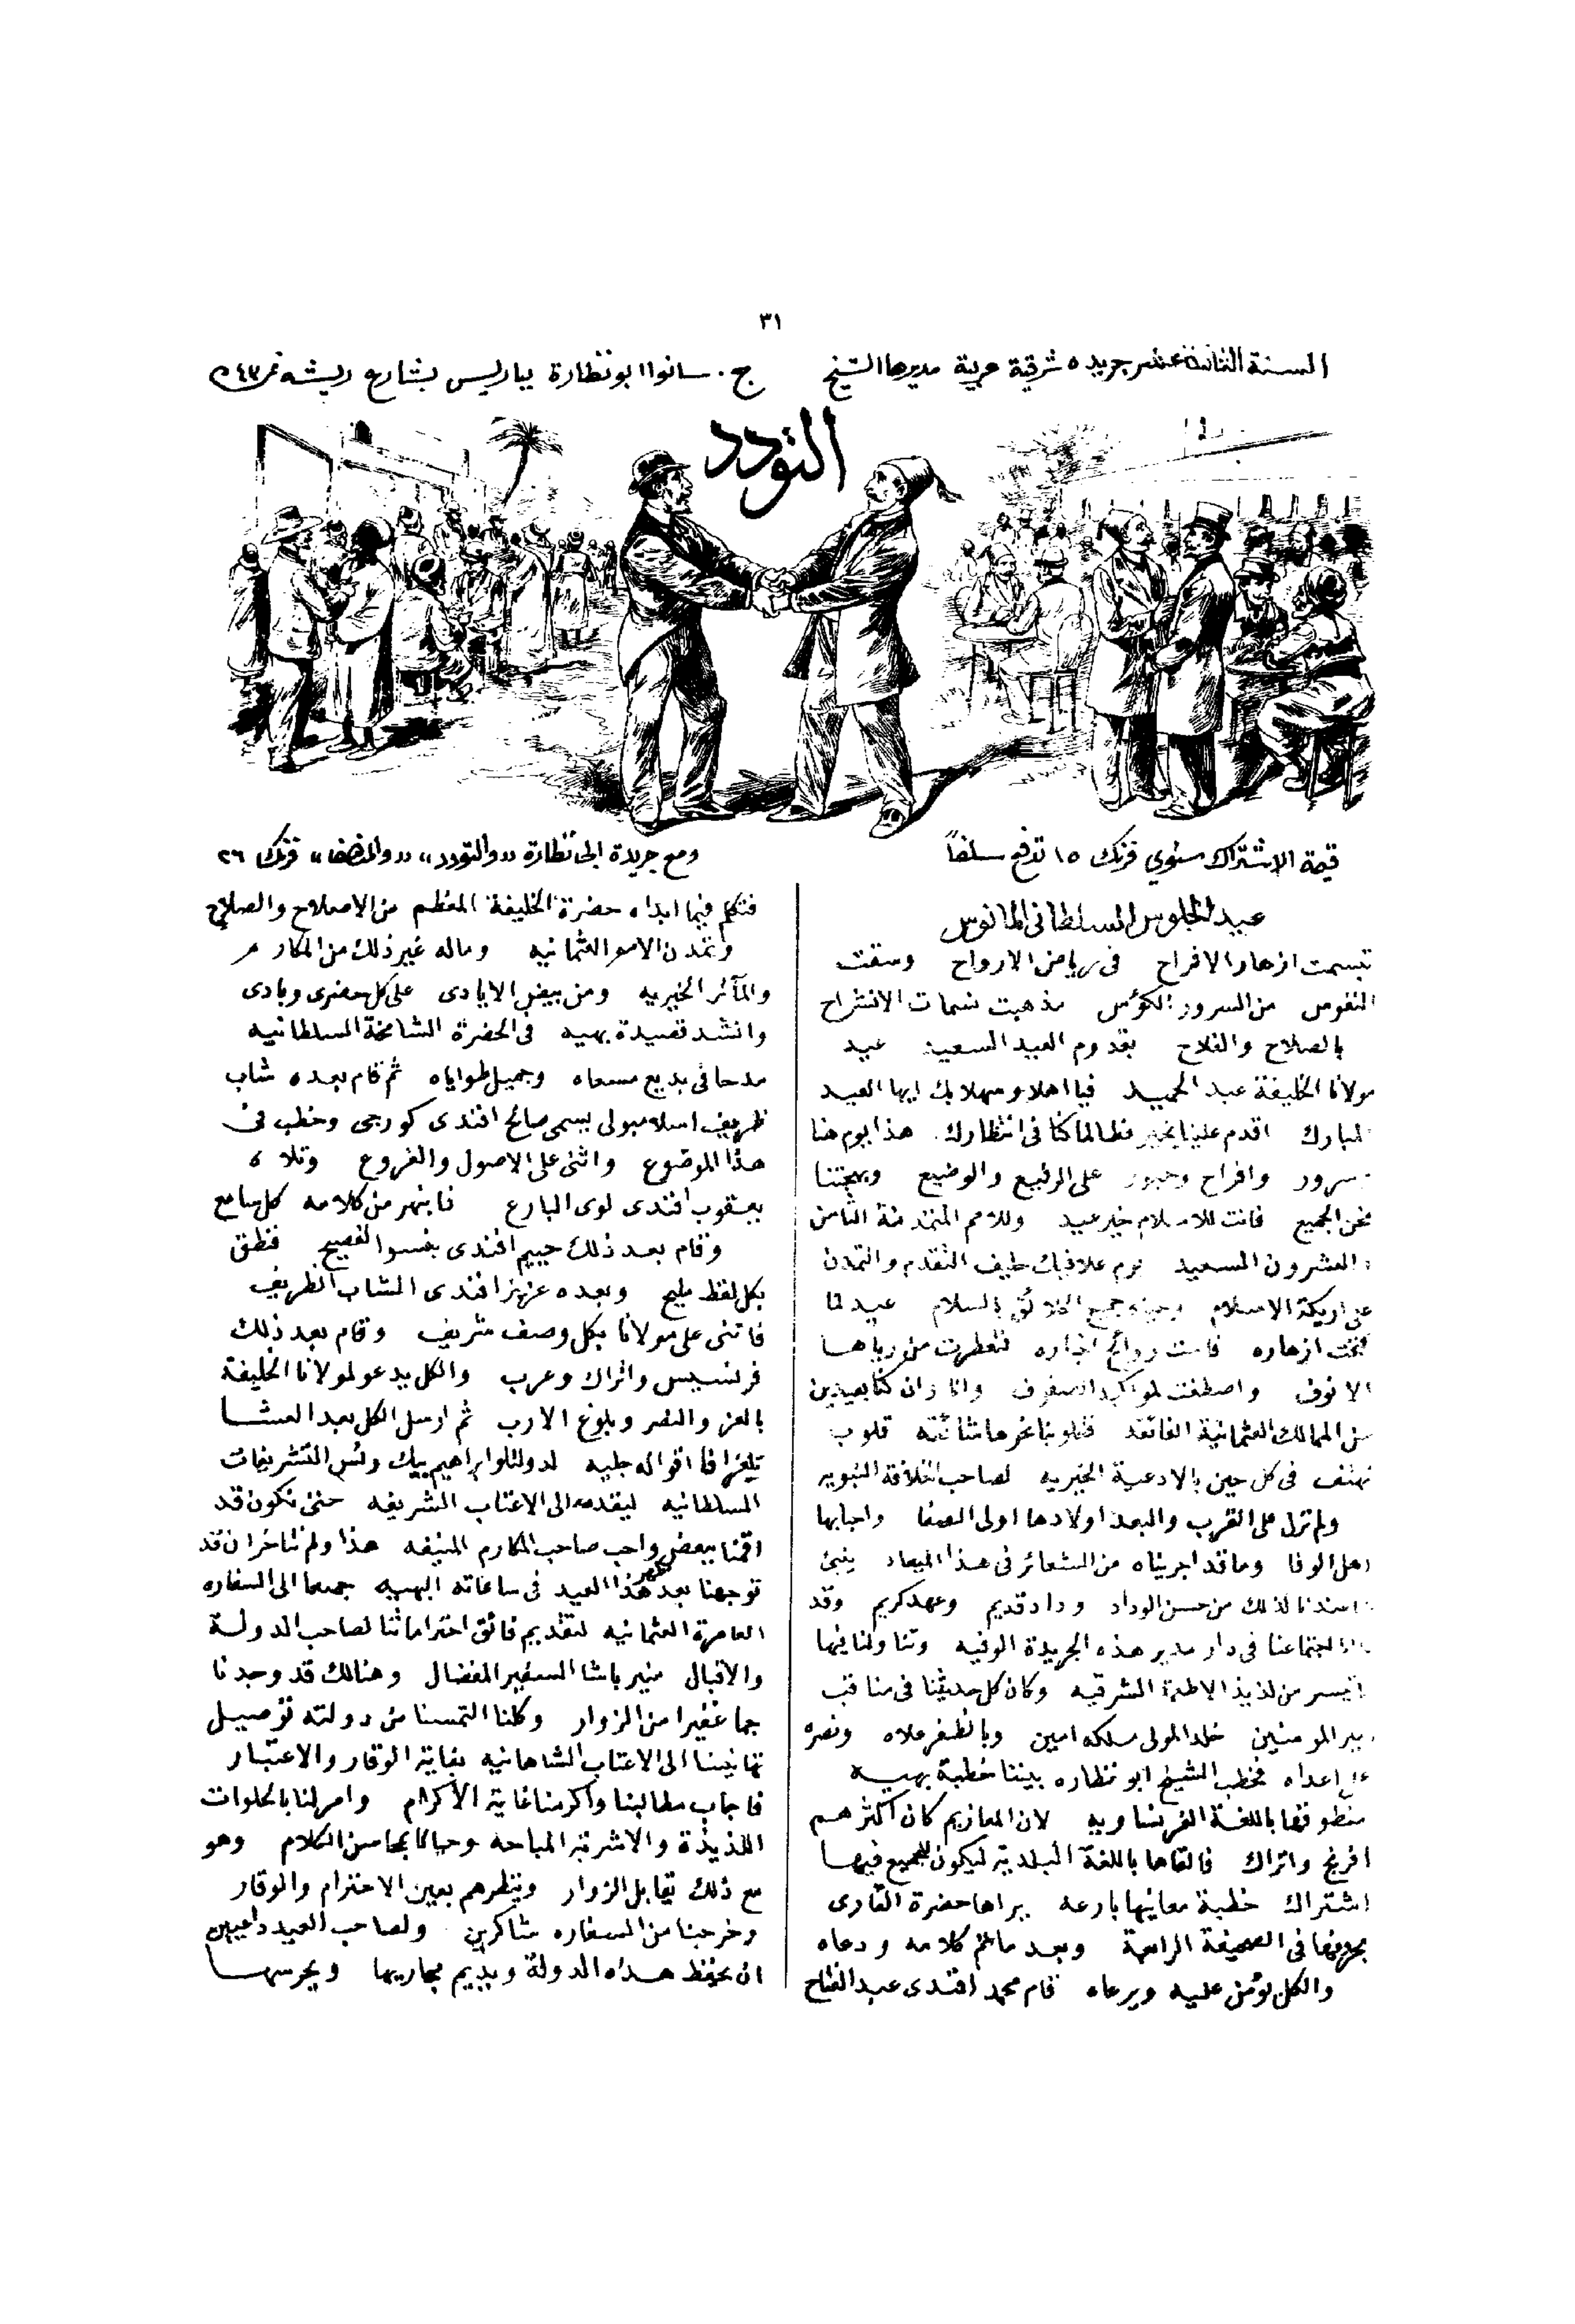 ٣١
السنة الثانية عشر جريده شرقية حربية مديرها الشيخ ج. سانوا ابو نظارة بباريس بشارع ريشه نمر ٤٣
التودد
قيمة الاشتراك سنوي فرنك ١٥ تدفع سلفاً
ومع جريدة ابي نظارة "والتودد" "والمنصف" فرنك ٢٦
عيد الجلوس السلطانى المانوس
تبسمت ازهار الافراح فى رياض الارواح وسقت
النفوس من السرور الكؤس مذ هبت نسمات الانشراح
بالصلاح والفلاح بقدوم العيد السعيد عيد
مولانا الخليفة عبد الحميد فيا اهلا وسهلا بك ايها العيد
المبارك اقدم علينا بخير فطالما كنا فى انتظارك. هذا يوم هنا
وسرور وافراح وحبور على الرفيع والوضيع وبهجتنا
نحن الجميع فانت للاسلام خير عيد وللامم المتمدنة الثامن
والعشرون السعيد يوم علا فيك حليف التقدم والتمدن
على اريكة الاسلام جميع الخلائق بالسلام عيد لما
تفتحت ازهاره روائح اخباره فتعطرت من رياها
الانوف واصطفت لمواكبه الصفوف وانا وان كنا بعيدين
من الممالك العثمانية الفائقه فقلوبنا نحوها شائقه قلوب
تهتف فى كل حين بالادعية الخيريه لصاحب الخلافة النبويه
ولم تزل على القرب والبعد اولادها اولى الصفا واحبابها
اهل الوفا وما قد اجريناه من الشعائر فى هذا الميعاد ينبئ
لذلك من حسن الوداد وداد قديم وعهد كريم وقد
اجتماعنا فى دار مدير هذه الجريدة الوفيه وتناولنا فيها
ما تيسر من لذيذ الاطعمة الشرقيه وكان كل حديثنا فى مناقب
امير المومنين خلد المولى ملكه امين وبالظفر علاه ونصره
على اعداه فخطب الشيخ ابو نظاره بيننا خطبة بهيه
منطوقها باللغة الفرنساويه لان المعازيم كان اكثرهم
افرنج واتراك فالقاها باللغة البلديه ليكون للجميع فيها
اشتراك خطبة معانيها بارعه يراها حضرة القارى
بحروفها فى الصحيفة الرابعة وبعد ما تم كلامه ودعاه
والكل يؤمن عليه ويرعاه قام محمد افندى عبد الفتاح
فتكلم فيما ابداه حضرة الخليفة المعظم من الاصلاح والصلاح
وتمدن الامم العثمانيه وماله غير ذلك من المكارم
والمآثر الخيريه ومن بيض الايادى على كل حضرى وبادى
وانشد قصيدة بهيه فى الحضرة الشامخة السلطانيه
مدحا فى بديع مسعاه وجميل طواياه ثم قام بعده شاب
ظريف اسلامبولى يسمى صالح افندى كورجى وخطب فى
هذا الموضوع واثنى على الاصول والفروع وتلاه
يعقوب افندى لوى البارع فانبهر من كلامه كل سامع
وقام بعد ذلك حييم افندى بفسوا الفصيح فنطق
بكل لفظ مليح وبعده عزيز افندى الشاب الظريف
فاثنى على مولانا بكل وصف شريف وقام بعد ذلك
فرنسيس واتراك وعرب والكل يدعو لمولانا الخليفة
بالعز والنصر وبلوغ الارب ثم ارسل الكل بعد العشا
تلغرافا اقواله جليه لدولتلو ابراهيم بيك رئس التشريفات
السلطانيه ليقدمه الى الاعتاب الشريفه حتى نكون قد
اقمنا ببعض واجب صاحب المكارم المنيفه هذا ولم نتاخر ان قد
توجهنا بعد ظهر هذا العيد فى ساعاته البهيه جميعا الى السفاره
العامرة العثمانيه لتقديم فائق احتراماتنا لصاحب الدولة
والاقبال منير باشا السفير المفضال وهنالك قد وجدنا
جما غفيرا من الزوار وكلنا التمسنا من دولته توصيل
تهانينا الى الاعتاب الشاهانيه بغاية الوقار والاعتبار
فاجاب مطالبنا واكرمنا غاية الاكرام وامر لنا بالحلوات
اللذيذة والاشربة المباحه وحيانا بمحاسن الكلام وهو
مع ذلك يقابل الزوار وينظرهم بعين الاحترام والوقار
وخرجنا من السفاره شاكرين ولصاحب العيد داعيين
ان يحفظ هذه الدولة ويديم مجاريها ويحرسها